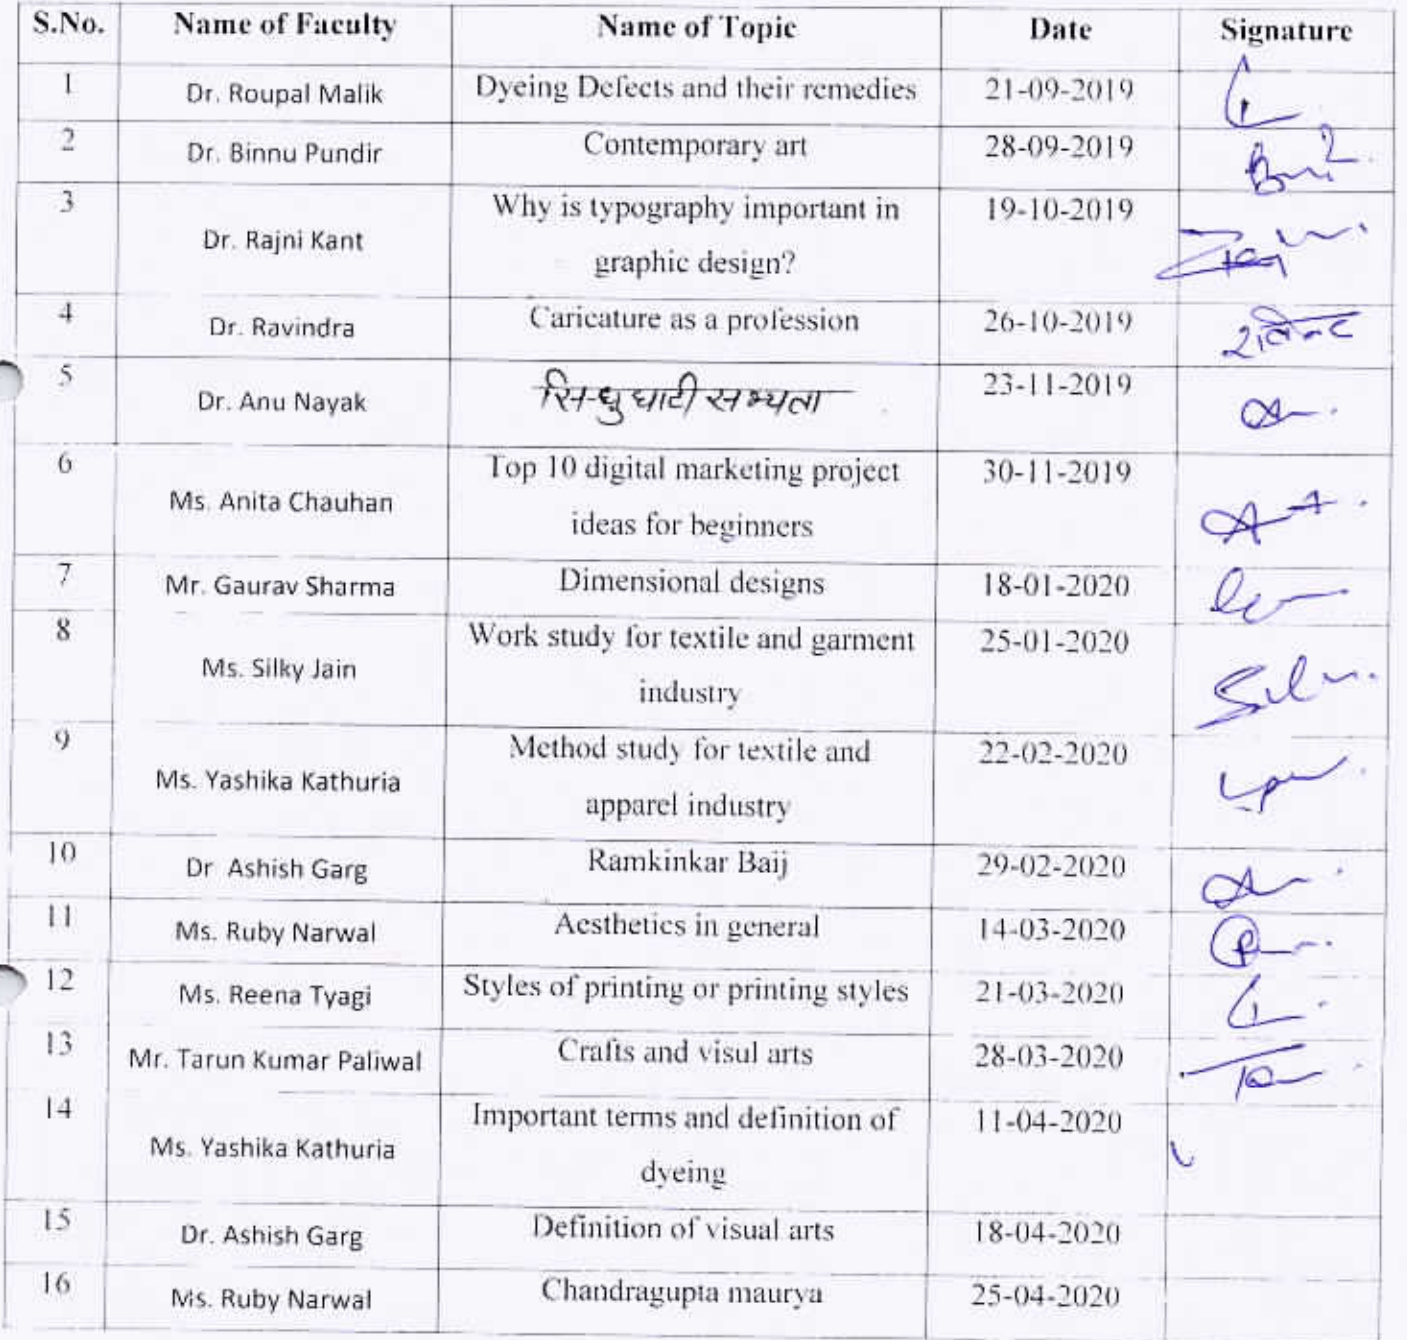 S.No. Name of Faculty Name of Topic Date Signature
1 Dr. Roupal Malik Dyeing Defects and their remedies 21-09-2019
2 Dr. Binnu Pundir Contemporary art 28-09-2019
3 Dr. Rajni Kant Why is typography important in 19-10-2019
graphic design?
4 Dr. Ravindra Caricature as a profession 26-10-2019
5 Dr. Anu Nayak सिन्धु घाटी सभ्यता 23-11-2019
6 Ms. Anita Chauhan Top 10 digital marketing project 30-11-2019
ideas for beginners
7 Mr. Gaurav Sharma Dimensional designs 18-01-2020
8 Ms. Silky Jain Work study for textile and garment 25-01-2020
industry
9 Ms. Yashika Kathuria Method study for textile and 22-02-2020
apparel industry
10 Dr Ashish Garg Ramkinkar Baij 29-02-2020
11 Ms. Ruby Narwal Aesthetics in general 14-03-2020
12 Ms. Reena Tyagi Styles of printing or printing styles 21-03-2020
13 Mr. Tarun Kumar Paliwal Crafts and visul arts 28-03-2020
14 Ms. Yashika Kathuria Important terms and definition of 11-04-2020
dyeing
15 Dr. Ashish Garg Definition of visual arts 18-04-2020
16 Ms. Ruby Narwal Chandragupta maurya 25-04-2020